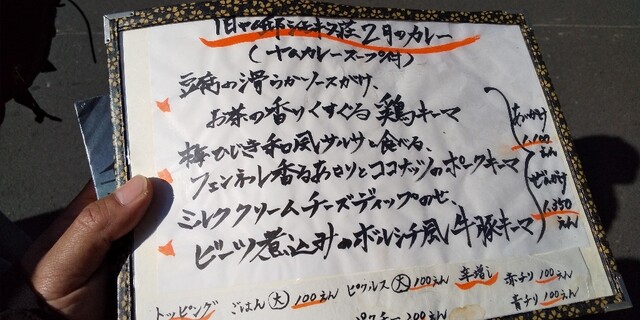 2月のカレー
カレースープ付)
豆腐の滑らかソースがけ、
お茶の香りくすぐる鶏キーマ
梅ひじき和風サルサと食べる、
フェンネル香るあさりとココナッツのポークキーマ
ミルククリームチーズディップのせ、
ビーツ煮込みのボルシチ風牛豚キーマ
あいがけ
1,100えん
ぜんがけ
1,350えん
トッピング ごはん大 100えん ピクルス大 100えん 辛増し 赤チリ 100えん
パクチー 100えん 青チリ 100えん